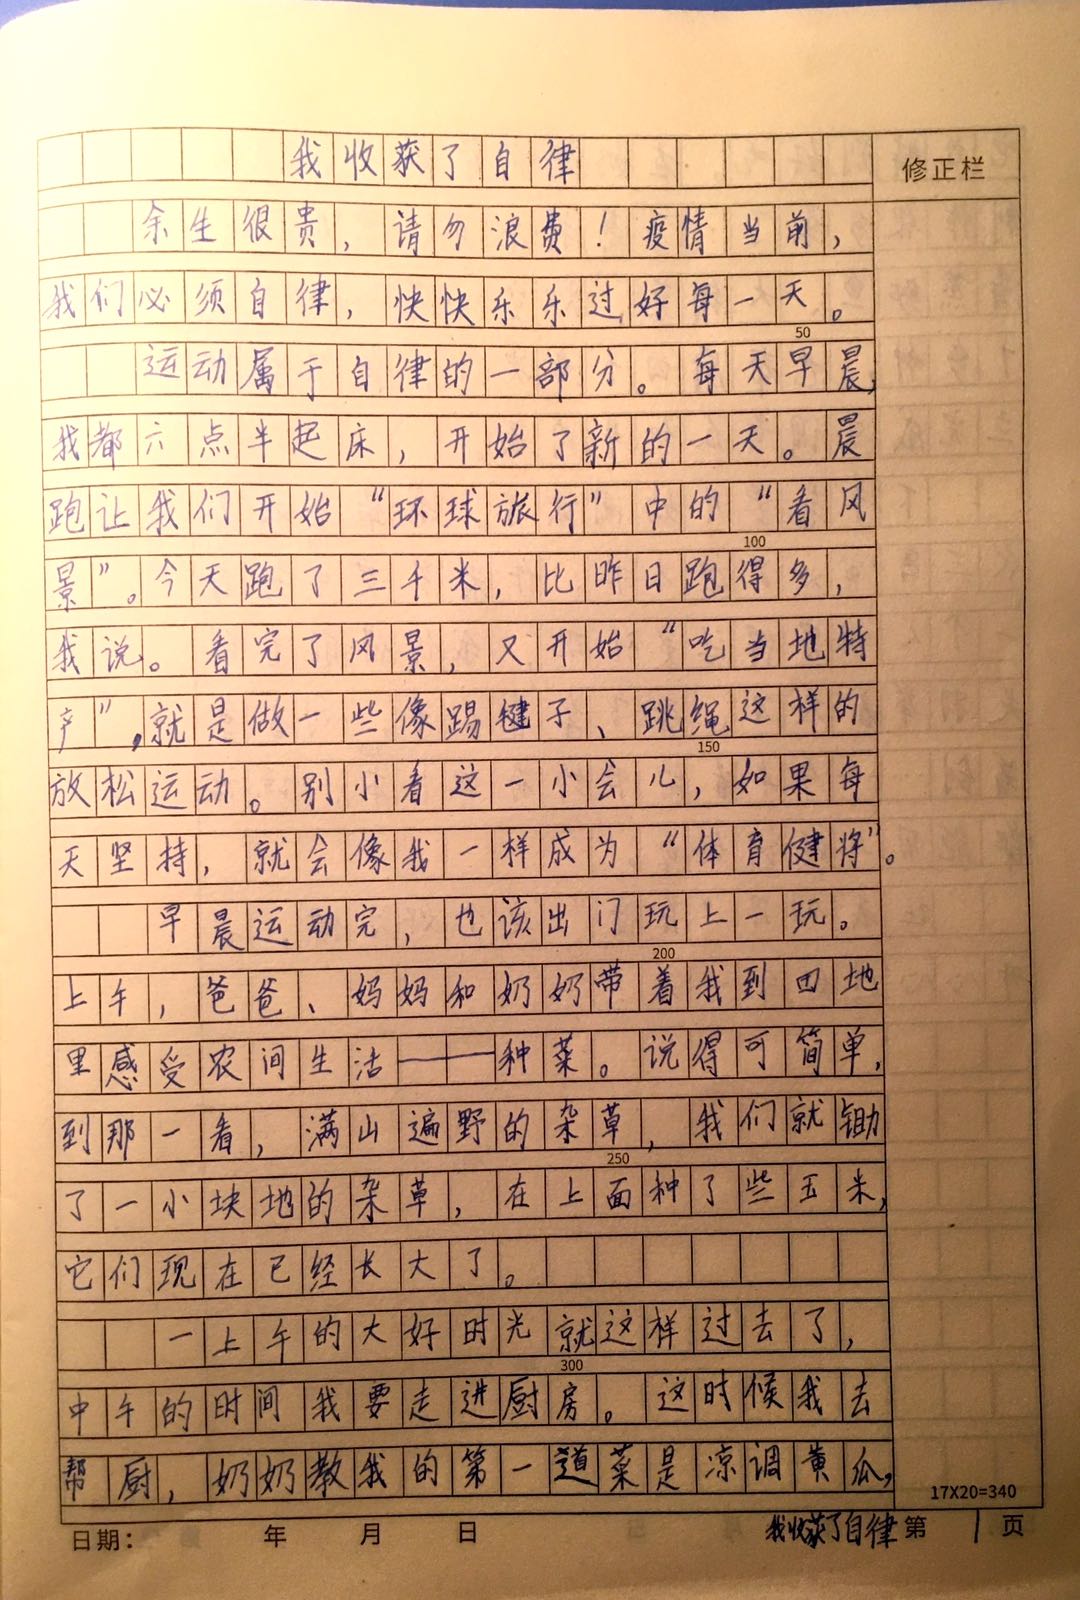 我收获了自律
修正栏
余生很贵，请勿浪费！疫情当前，
我们必须自律，快快乐乐过好每一天。
50
运动属于自律的一部分。每天早晨，
我都六点半起床，开始了新的一天。晨
跑让我们开始“环球旅行”中的“看风
100
景”。今天跑了三千米，比昨日跑得多，
我说。看完了风景，又开始“吃当地特
产”，就是做一些像踢毽子、跳绳这样的
150
放松运动。别小看这一小会儿，如果每
天坚持，就会像我一样成为“体育健将”。
早晨运动完，也该出门玩上一玩。
200
上午，爸爸、妈妈和奶奶带着我到田地
里感受农间生活——种菜。说得可简单，
到那一看，满山遍野的杂草，我们就锄
250
了一小块地的杂草，在上面种了些玉米，
它们现在已经长大了。
一上午的大好时光就这样过去了，
300
中午的时间我要走进厨房。这时候我去
帮厨，奶奶教我的第一道菜是凉调黄瓜，
17X20=340
日期： 年 月 日 我收获了自律 第 1 页